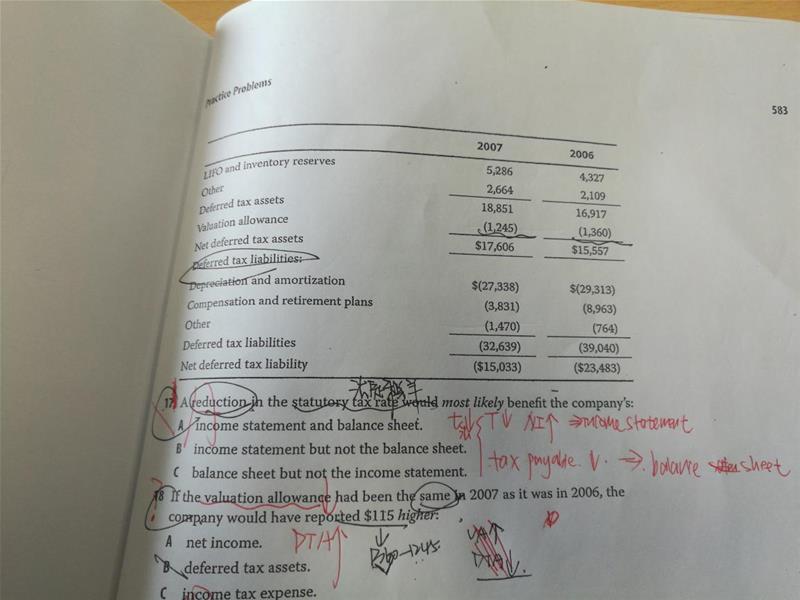 Practice Problems
583
2007 2006
LIFO and inventory reserves 5,286 4,327
Other 2,664 2,109
Deferred tax assets 18,851 16,917
Valuation allowance (1,245) (1,360)
Net deferred tax assets $17,606 $15,557
Deferred tax liabilities:
Depreciation and amortization $(27,338) $(29,313)
Compensation and retirement plans (3,831) (8,963)
Other (1,470) (764)
Deferred tax liabilities (32,639) (39,040)
Net deferred tax liability ($15,033) ($23,483)
法定税率
17 A reduction in the statutory tax rate would most likely benefit the company's:
A income statement and balance sheet.
T↓ NI↑ ⇒ income statement
B income statement but not the balance sheet.
C balance sheet but not the income statement.
tax payable ↓. → balance sheet
? 18 If the valuation allowance had been the same in 2007 as it was in 2006, the
company would have reported $115 higher:
A net income.
DTA↑
1360-1245
VA↑
DTA↓
B deferred tax assets.
C income tax expense.